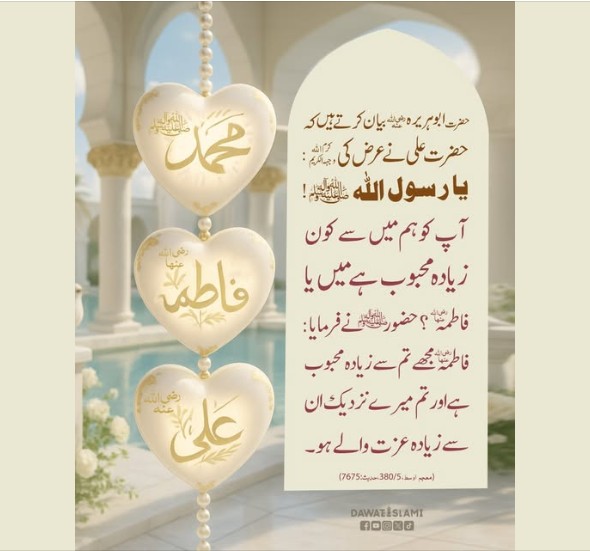 محمد ﷺ
فاطمہ رضی اللہ عنہا
علی رضی اللہ عنہ
حضرت ابو ہریرہ رضی اللہ عنہ بیان کرتے ہیں کہ
حضرت علی نے عرض کی کرم اللہ وجہہ الکریم :
یا رسول اللہ ﷺ !
آپ کو ہم میں سے کون
زیادہ محبوب ہے میں یا
فاطمہ رضی اللہ عنہا ؟ حضور ﷺ نے فرمایا :
فاطمہ رضی اللہ عنہا مجھے تم سے زیادہ محبوب
ہے اور تم میرے نزدیک ان
سے زیادہ عزت والے ہو۔
(معجم اوسط، 380/5، حدیث: 7675)
DAWATEISLAMI